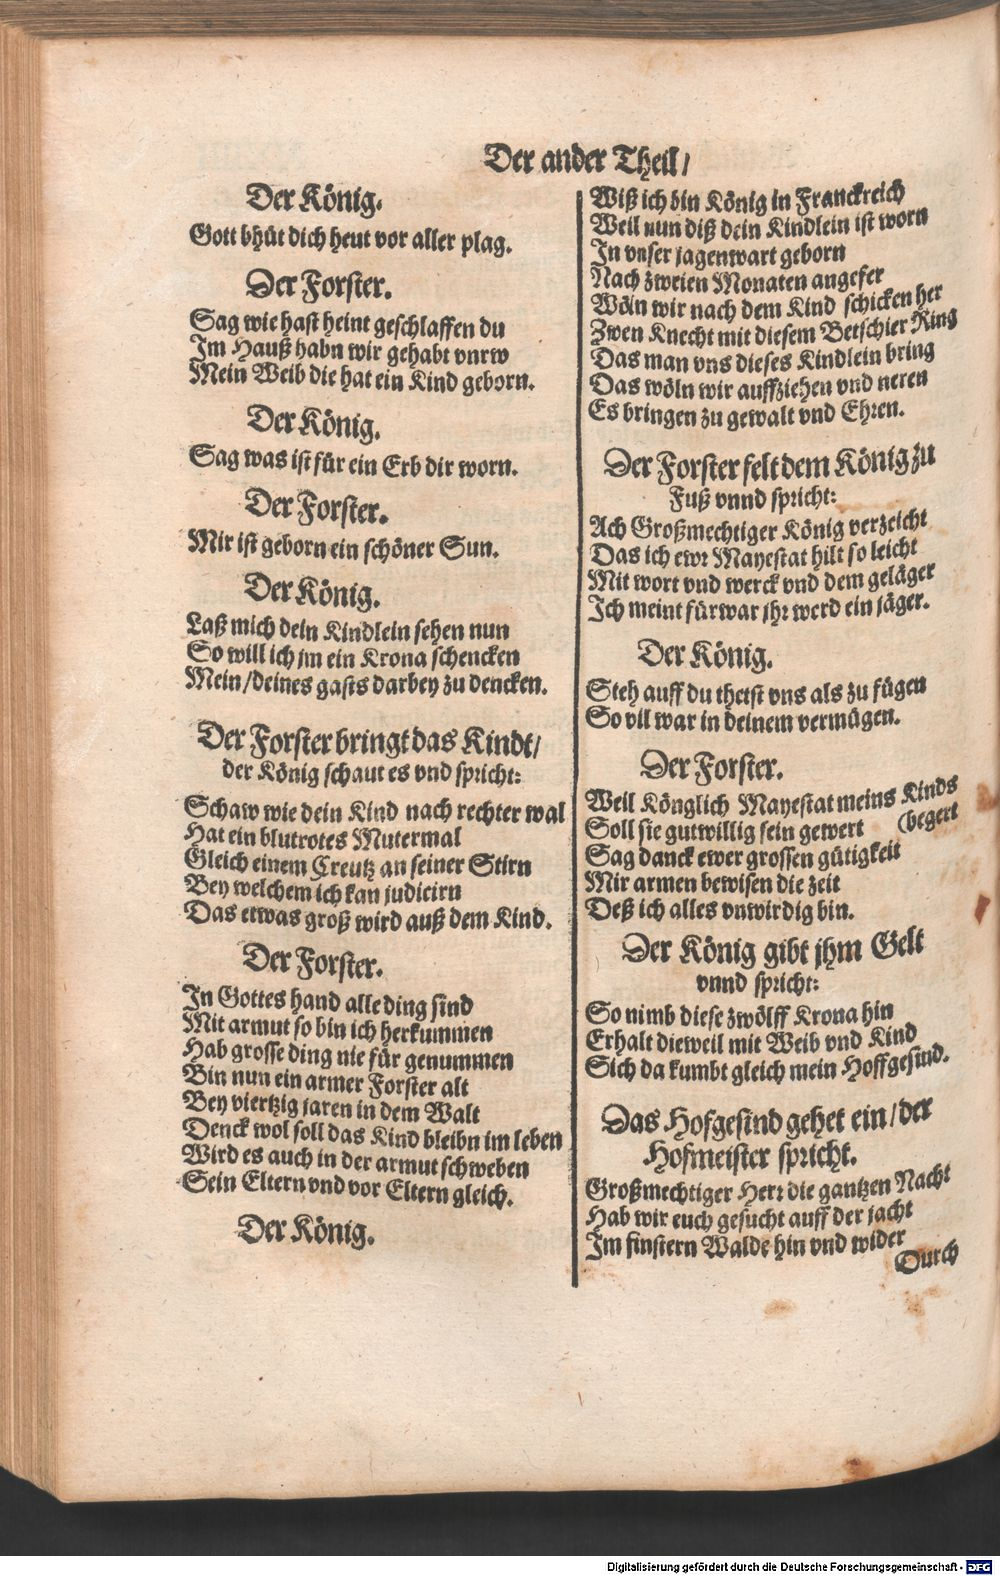 Der ander Theil/
Der König.
Gott bhüt dich heut vor aller plag.
Der Forster.
Sag wie hast heint geschlaffen du
Im Hauß habn wir gehabt vnrw
Mein Weib die hat ein Kind geborn.
Der König.
Sag was ist für ein Erb dir worn.
Der Forster.
Mir ist geborn ein schöner Sun.
Der König.
Laß mich dein Kindlein sehen nun
So will ich jm ein Krona schencken
Mein/deines gasts darbey zu dencken.
Der Forster bringt das Kindt/
der König schaut es vnd spricht:
Schaw wie dein Kind nach rechter wal
Hat ein blutrotes Mutermal
Gleich einem Creutz an seiner Stirn
Bey welchem ich kan judicirn
Das etwas groß wird auß dem Kind.
Der Forster.
In Gottes hand alle ding sind
Mit armut so bin ich herkummen
Hab grosse ding nie für genummen
Bin nun ein armer Forster alt
Bey viertzig jaren in dem Walt
Denck wol soll das Kind bleibn im leben
Wird es auch in der armut schweben
Sein Eltern vnd vor Eltern gleich.
Der König.
Wiß ich bin König in Franckreich
Weil nun diß dein Kindlein ist worn
In vnser jagenwart geborn
Nach zweien Monaten angefer
Wöln wir nach dem Kind schicken her
Zwen Knecht mit diesem Betschier Ring
Das man vns dieses Kindlein bring
Das wöln wir auffziehen vnd neren
Es bringen zu gewalt vnd Ehren.
Der Forster felt dem König zu
Fuß vnnd spricht:
Ach Großmechtiger König verzeicht
Das ich ewr Mayestat hilt so leicht
Mit wort vnd werck vnd dem geläger
Ich meint fürwar jhr werd ein jäger.
Der König.
Steh auff du thetst vns als zu fügen
So vil war in deinem vermügen.
Der Forster.
Weil Könglich Mayestat meins Kinds
Soll sie gutwillig sein gewert (begert
Sag danck ewer grossen gütigkeit
Mir armen bewisen die zeit
Deß ich alles vnwirdig bin.
Der König gibt jhm Gelt
vnnd spricht:
So nimb diese zwölff Krona hin
Erhalt dieweil mit Weib vnd Kind
Sich da kumbt gleich mein Hoffgesind.
Das Hofgesind gehet ein/der
Hofmeister spricht.
Großmechtiger Herr die gantzen Nacht
Hab wir euch gesucht auff der jacht
Im finstern Walde hin vnd wider
Durch
Digitalisierung gefördert durch die Deutsche Forschungsgemeinschaft - DFG